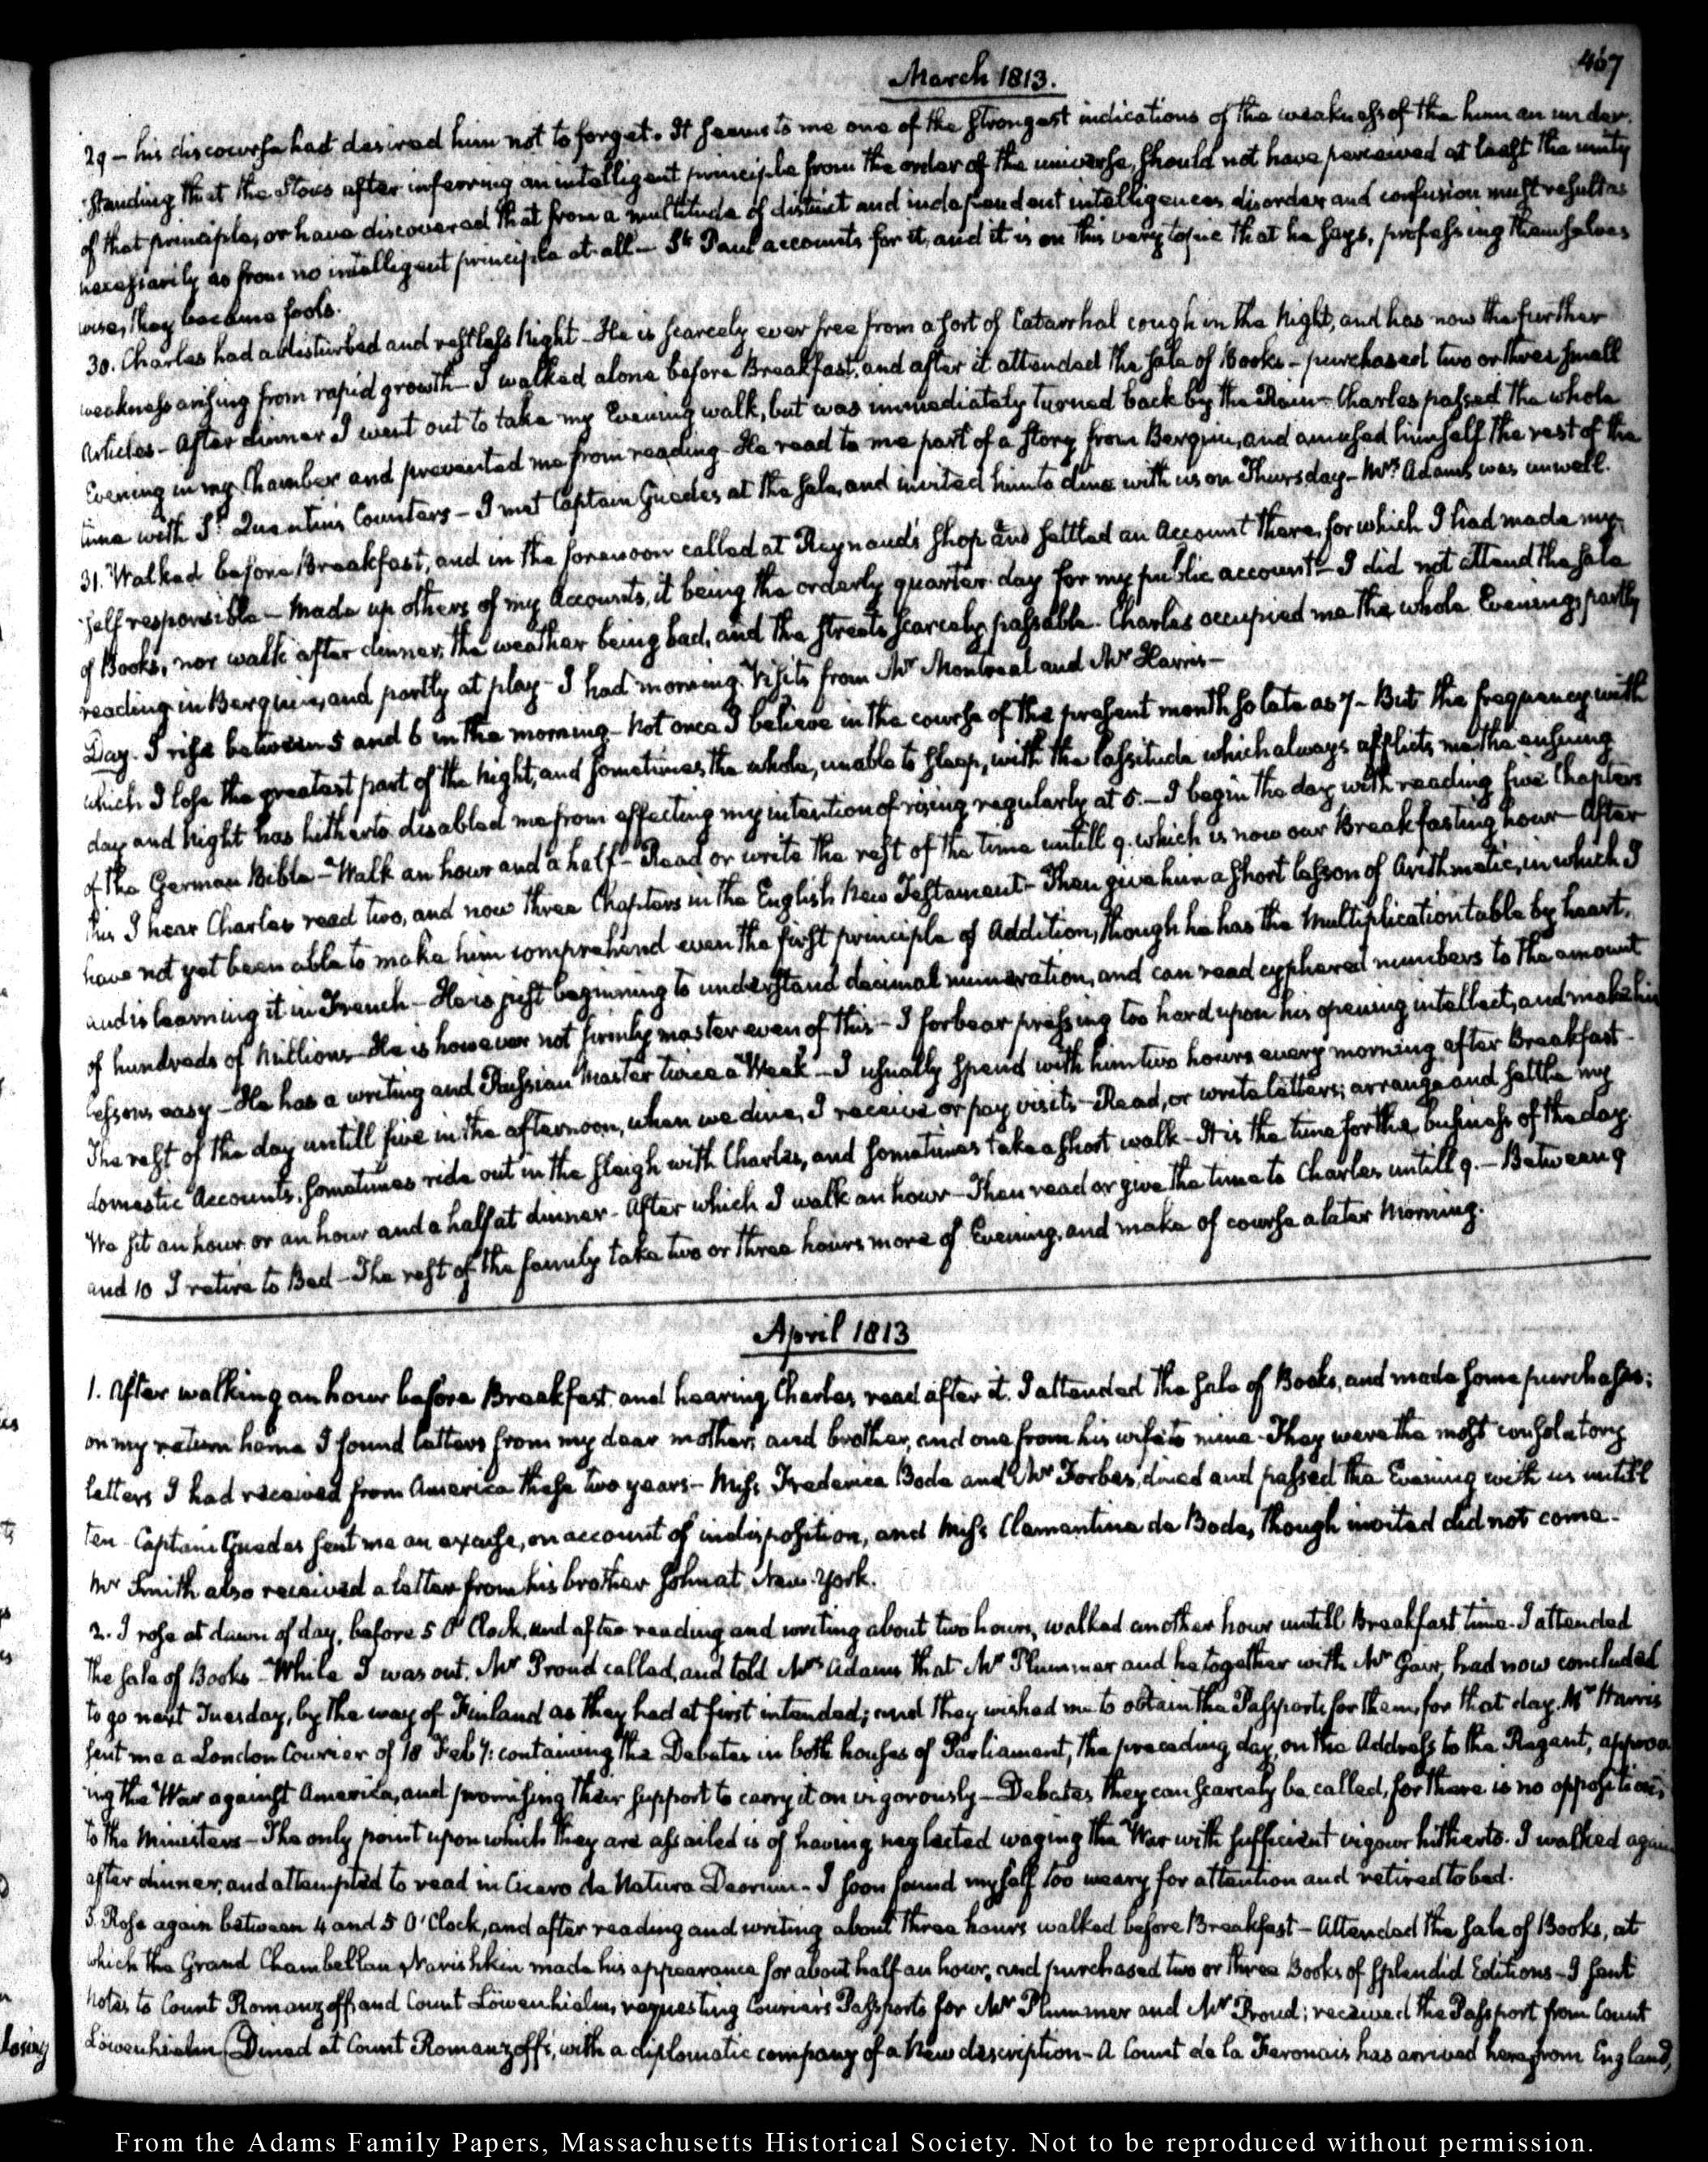 467
March 1813.
29 - his discourse had desired him not to forget. It seems to me one of the strongest indications of the weakness of the human under-
-standing that the Stoics after inferring an intelligent principle from the order of the universe, should not have perceived at least the unity
of that principle, or have discovered that from a multitude of distinct and independent intelligences disorder and confusion must result as
necessarily as from no intelligent principle at all - St. Paul accounts for it, and it is on this very topic that he says, professing themselves
wise, they became fools.
30. Charles had a disturbed and restless Night - He is scarcely ever free from a sort of Catarrhal cough in the Night, and has now the further
weakness arising from rapid growth - I walked alone before Breakfast, and after it attended the sale of Books - purchased two or three small
Articles - After dinner I went out to take my Evening walk, but was immediately turned back by the Rain - Charles passed the whole
Evening in my Chamber and prevented me from reading - He read to me part of a story from Berquin, and amused himself the rest of the
time with St. Quentin's Counters - I met Captain Guedes at the sale, and invited him to dine with us on Thursday - Mrs Adams was unwell.
31. Walked before Breakfast, and in the forenoon called at Reynaud's shop and settled an Account there, for which I had made my-
-self responsible - Made up others of my Accounts, it being the orderly quarter-day for my public account - I did not attend the sale
of Books, nor walk after dinner, the weather being bad, and the streets scarcely passable. Charles occupied me the whole Evening, partly
reading in Berquin, and partly at play - I had morning Visits from Mr Montreal and Mr Harris -
Day. I rise between 5 and 6 in the morning - Not once I believe in the course of the present month so late as 7 - But the frequency with
which I lose the greatest part of the Night, and sometimes the whole, unable to sleep, with the lassitude which always afflicts me the ensuing
day and Night has hitherto disabled me from effecting my intention of rising regularly at 5. - I begin the day with reading five Chapters
of the German Bible - Walk an hour and a half - Read or write the rest of the time untill 9. which is now our Breakfasting hour - After
this I hear Charles read two, and now three Chapters in the English New Testament - Then give him a short lesson of Arithmetic, in which I
have not yet been able to make him comprehend even the first principle of Addition, though he has the Multiplication table by heart,
and is learning it in French - He is just beginning to understand decimal numeration, and can read cyphered numbers to the amount
of hundreds of Millions - He is however not firmly master even of this - I forbear pressing too hard upon his opening intellect, and make his
lessons easy - He has a writing and Russian Master twice a Week - I usually spend with him two hours every morning after Breakfast -
The rest of the day untill five in the afternoon, when we dine, I receive or pay visits - Read, or write letters; arrange and settle my
domestic Accounts. Sometimes ride out in the sleigh with Charles, and sometimes take a short walk - It is the time for the business of the day.
We sit an hour or an hour and a half at dinner - After which I walk an hour - Then read or give the time to Charles untill 9. - Between 9
and 10 I retire to Bed - The rest of the family take two or three hours more of Evening, and make of course a later Morning.
April 1813
1. After walking an hour before Breakfast and hearing Charles read after it. I attended the sale of Books, and made some purchases;
on my return home I found letters from my dear mother, and brother, and one from his wife to mine - They were the most consolatory
letters I had received from America these two years - Miss Frederica Bode and Mr Forbes, dined and passed the Evening with us untill
ten - Captain Guedes sent me an excuse, on account of indisposition, and Miss Clementina de Bode, though invited did not come -
Mr Smith also received a letter from his brother John at New-York.
2. I rose at dawn of day, before 5 O'Clock, and after reading and writing about two hours, walked another hour untill Breakfast time - I attended
the sale of Books - While I was out, Mr Proud called, and told Mrs Adams that Mr Plummer and he together with Mr Gavr, had now concluded
to go next Tuesday, by the way of Finland as they had at first intended; and they wished me to obtain the Passports for them, for that day. Mr Harris
sent me a London Courier of 18 Feby: containing the Debates in both houses of Parliament, the preceding day, on the Address to the Regent, approv-
-ing the War against America, and promising their support to carry it on vigorously - Debates they can scarcely be called, for there is no opposition,
to the Ministers - The only point upon which they are assailed is of having neglected waging the War with sufficient vigour hitherto. I walked again
after dinner, and attempted to read in Cicero de Natura Deorum - I soon found myself too weary for attention and retired to bed.
3. Rose again between 4 and 5 O'Clock, and after reading and writing about three hours walked before Breakfast - Attended the sale of Books, at
which the Grand Chambellan Narishkin made his appearance for about half an hour, and purchased two or three Books of splendid Editions - I sent
Notes to Count Romanzoff, and Count Löwenhielm, requesting Courier's Passports for Mr Plummer and Mr Proud; received the Passport from Count
Löwenhielm (Dined at Count Romanzoff's, with a diplomatic company of a New description - A Count de la Feronais has arrived here, from England,
losing
From the Adams Family Papers, Massachusetts Historical Society. Not to be reproduced without permission.